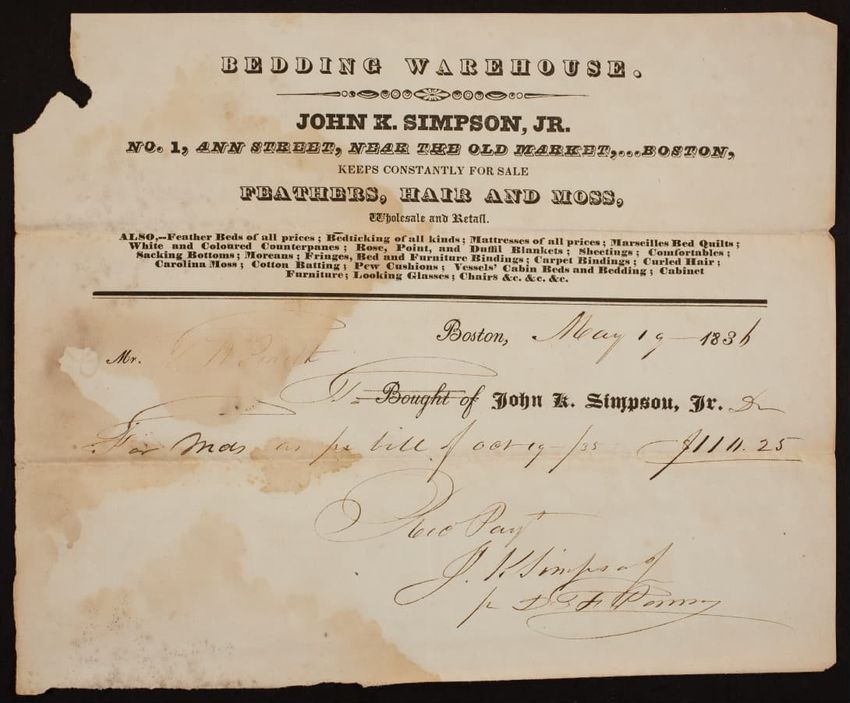 BEDDING WAREHOUSE.
JOHN K. SIMPSON, JR.
NO. 1, ANN STREET, NEAR THE OLD MARKET,...BOSTON,
KEEPS CONSTANTLY FOR SALE
FEATHERS, HAIR AND MOSS,
Wholesale and Retail.
ALSO,--Feather Beds of all prices; Bedticking of all kinds; Mattresses of all prices; Marseilles Bed Quilts;
White and Coloured Counterpanes; Rose, Point, and Duffil Blankets; Sheetings; Comfortables;
Sacking Bottoms; Moreans; Fringes, Bed and Furniture Bindings; Carpet Bindings; Curled Hair;
Carolina Moss; Cotton Batting; Pew Cushions; Vessels' Cabin Beds and Bedding; Cabinet
Furniture; Looking Glasses; Chairs &c. &c. &c.
Boston, May 19 1836
Mr.
To Bought of John K. Simpson, Jr. Dr
For Mds as pr bill of Oct 19 /35 $111.25
Recd Payt
J. K. Simpson Jr
pr